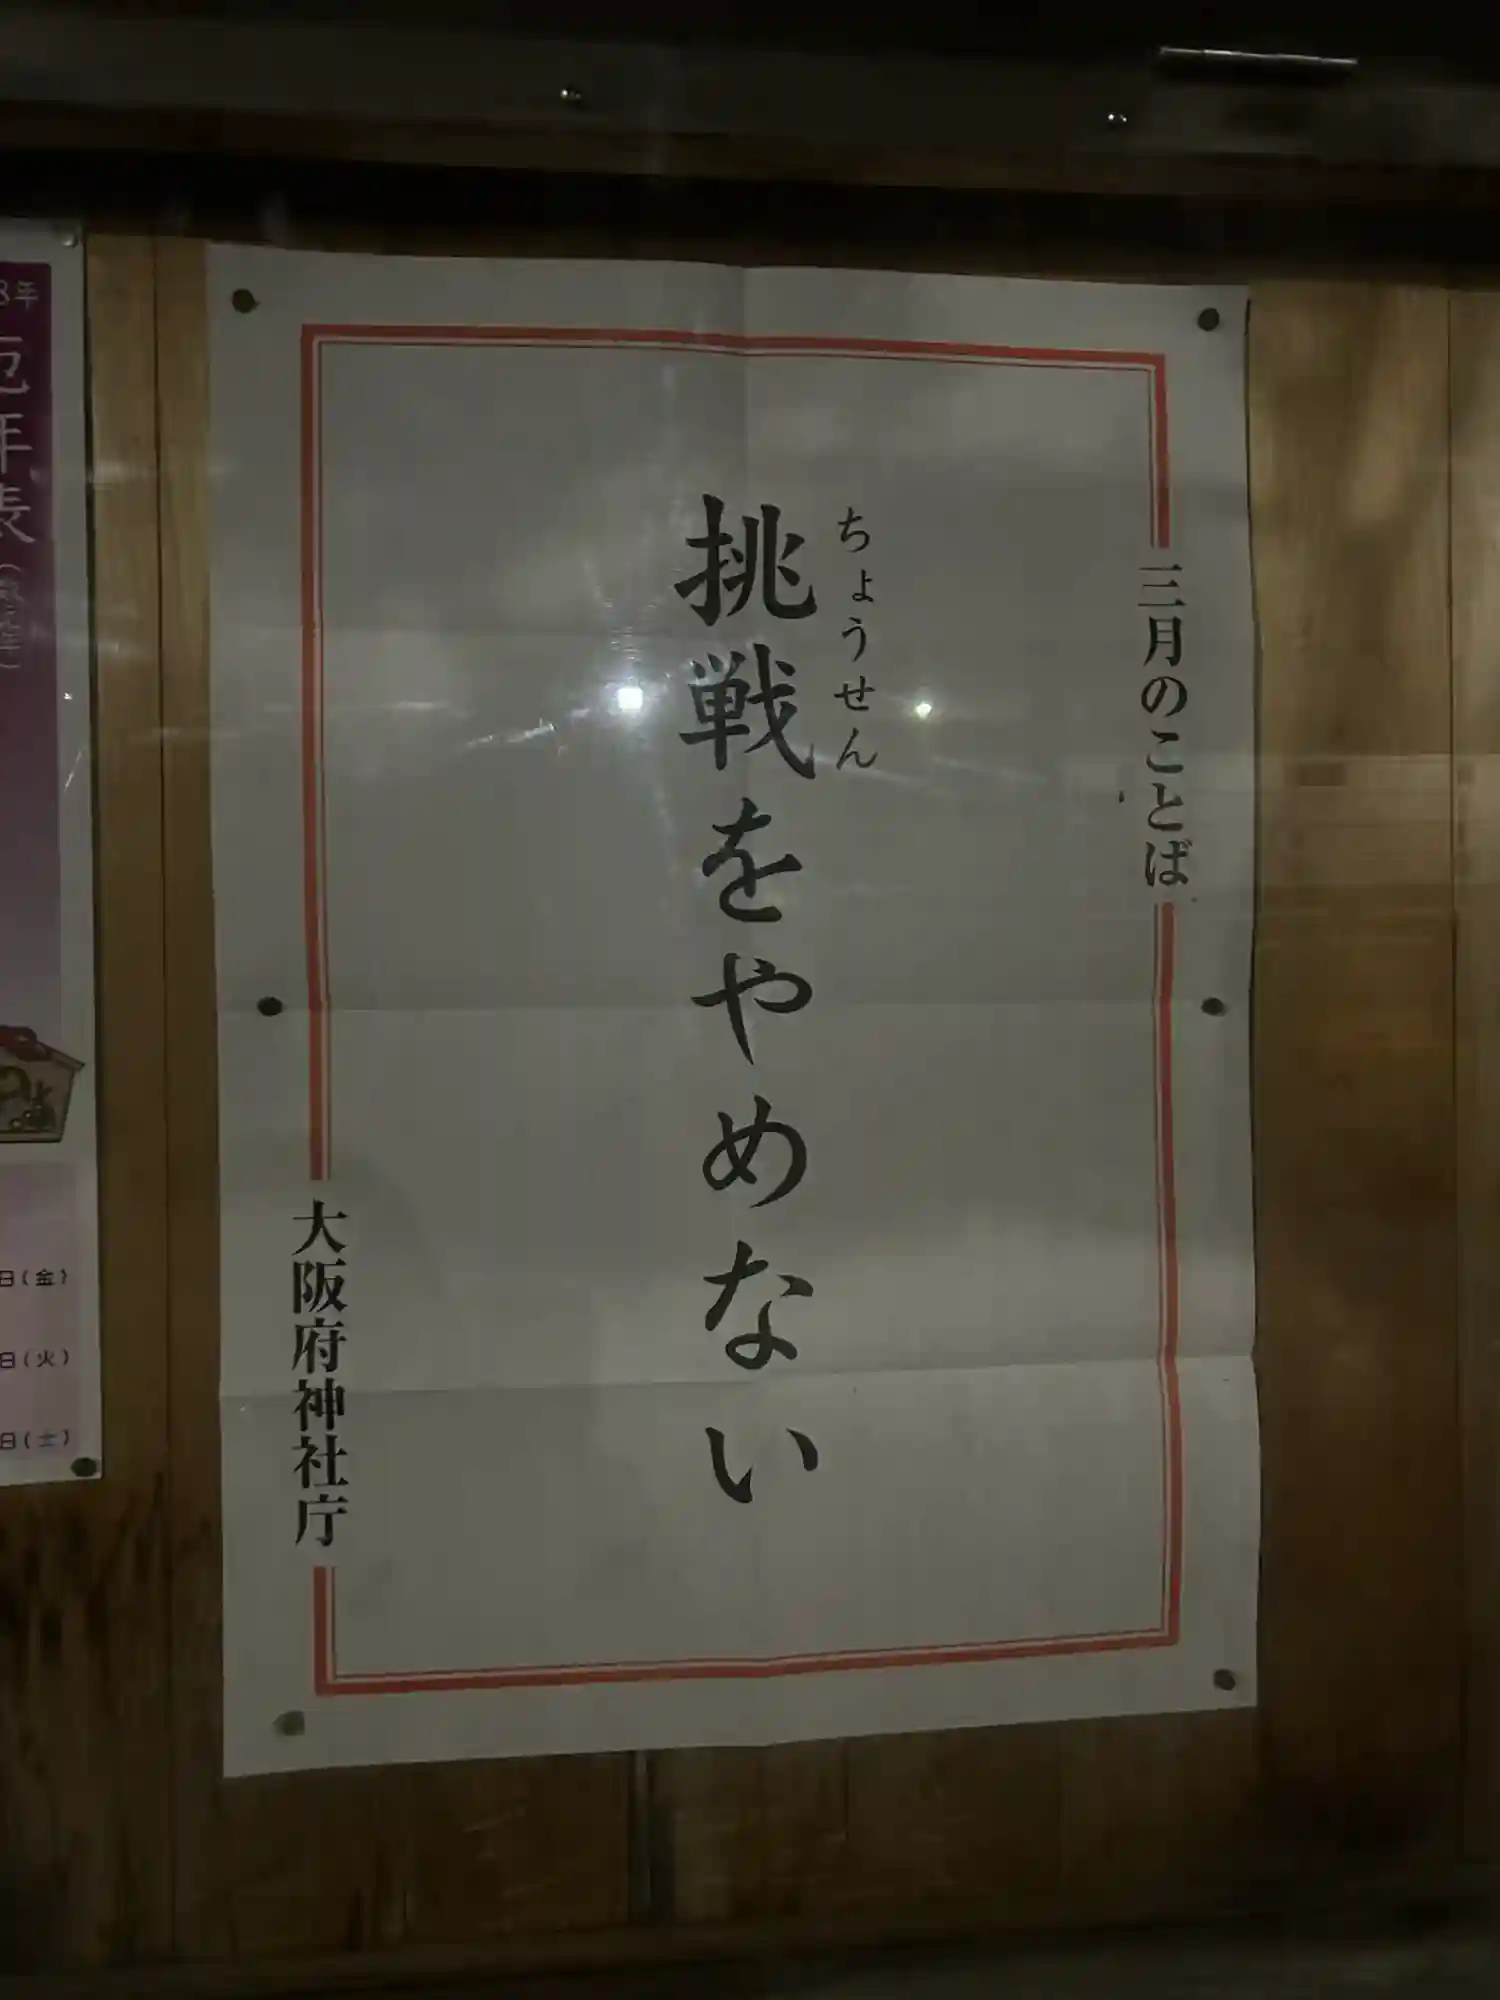 三月のことば
ちょうせん
挑戦をやめない
大阪府神社庁
8年
厄年表
日(金)
日(火)
日(土)